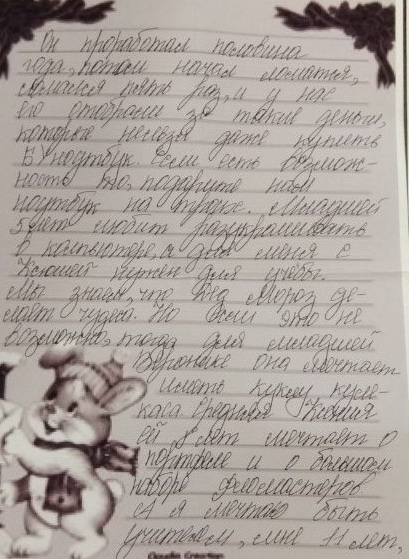 Он проработал половина
года, потом начал ломатся,
ломался пять раз, и у нас
его отобрали за такие деньги,
которые нельзя даже купить
БУ ноутбук. Если есть возмож-
ность то, подарите нам
ноутбук на троих. Младшей
5 лет любит разукрашивать
в компьютере, а для меня с
Ксюшей нужен для учебы.
Мы знаем, что Дед Мороз де-
лает чудеса. Но если это не
возможно, тогда для младшей
Веронике она мечтает
иметь куклу
Средняя Ксения
ей 8 лет мечтает о
портфеле и о большом
наборе фломастеров
А я мечтаю быть
учителем, мне 11 лет,